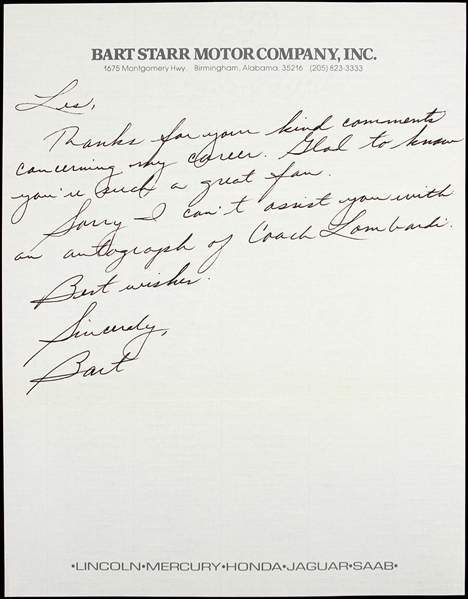 BART STARR MOTOR COMPANY, INC.
1675 Montgomery Hwy. Birmingham, Alabama, 35216 (205) 823-3333
Les,
Thanks for your kind comments
concerning my career. Glad to know
you're such a great fan.
Sorry I can't assist you with
an autograph of Coach Lombardi.
Best wishes.
Sincerely,
Bart
•LINCOLN•MERCURY•HONDA•JAGUAR•SAAB•